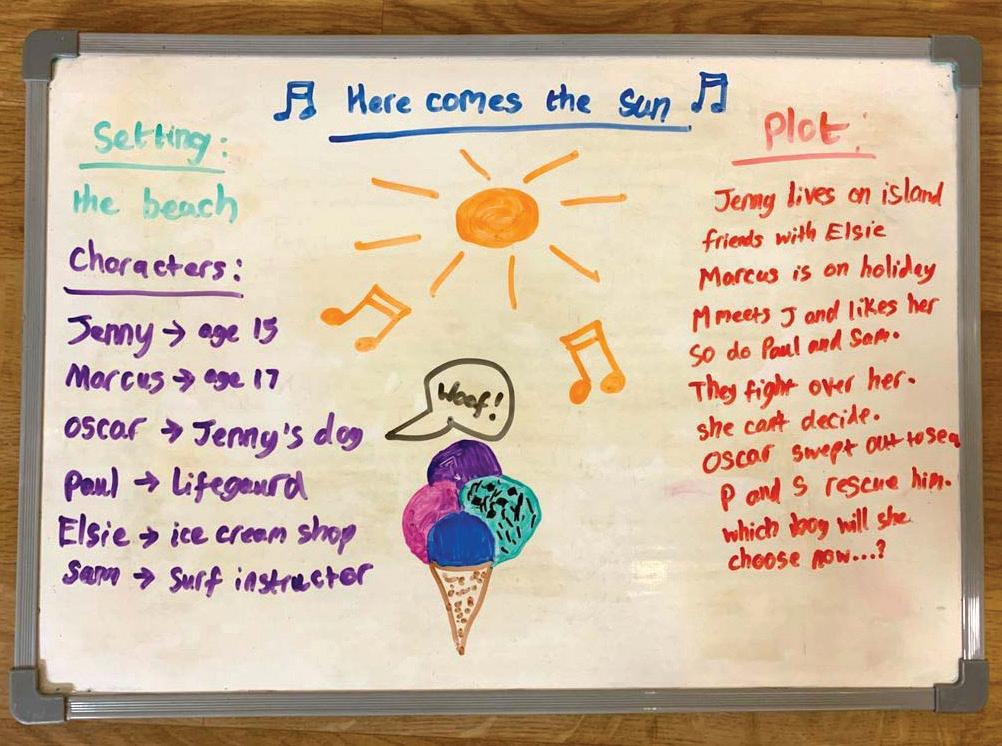 Here comes the sun
Setting:
the beach
Characters:
Jenny → age 15
Marcus → age 17
Oscar → Jenny's dog
Paul → Lifegaurd
Elsie → ice cream shop
Sam → Surf instructor
Woof!
Plot:
Jenny lives on island
friends with Elsie
Marcus is on holiday
M meets J and likes her
So do Paul and Sam.
They fight over her.
she can't decide.
Oscar swept out to sea
P and S rescue him.
which boy will she
choose now...?